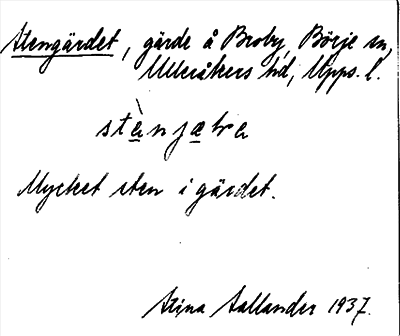 Stengärdet, gärde å Broby, Börje sn,
Ulleråkers hd, Upps. l.
Mycket sten i gärdet.
Stina Sallander 1937.